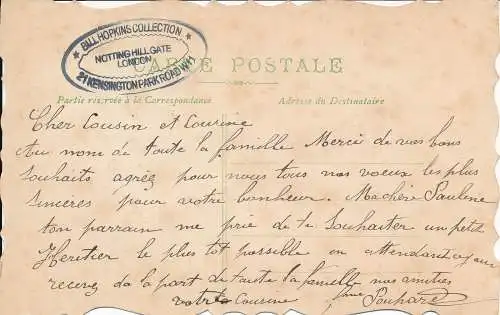 BILL HOPKINS COLLECTION
NOTTING HILL GATE
LONDON
21 KENSINGTON PARK ROAD W11
CARTE POSTALE
Partie reservée à la Correspondance
Adresse du Destinataire
Cher Cousin et Cousine
Au nom de toute la famille Merci de vos bons
souhaits agréez pour nous tous nos voeux les plus
sincères pour votre bonheur. Ma chère Pauline
ton parrain me prie de te souhaiter un petit
Heritier le plus tôt possible en attendant
recevez de la part de toute la famille nos amitiés
votre Cousine